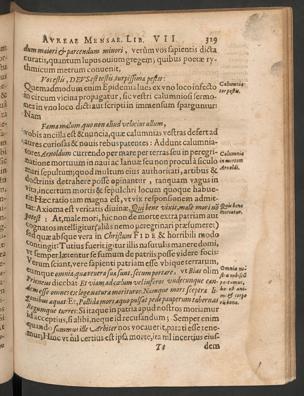 AVREAE MENSAE LIB. VII 329
dum maiori & parcendum minori, verùm vos sapientis dicta
curatis, quantum lupus ouium gregem; quibus poetæ ry-
thmicum metrum convenit,
Vos estis, DEVS est testis, turpissima pestis:
Quemadmodum enim Epidemia lues ex vno loco infecto
in circum vicina propagatur, sic vestri calumniosi sermo-
nes in vno loco dicti aut scripti in immensum sparguntur:
Nam
Fama malum quo non aliud velocius ullum,
vobis ancilla est & nuncia, quæ calumnias vestras defert ad
aures curiosas & nouis rebus patentes: Addunt calumnia-
tores, Arnoldum currendo per mare per terras seu in peregri-
natione mortuum in naui ac Ianuæ seu non procul à suo
mari sepultum; quod multum eius authoritati, artibus &
doctrinis detrahere posse opinantur, tanquam vagus in
vita, incertum mortis & sepulchri locum quoque habue-
rit: Hæc ratio tam magna est, vt vix responsionem admit-
tat: Axioma est veritatis diuinæ, Qui bene vivit, malè mori nõ
potest: At, male mori, hic non de morte extra patriam aut
cognatos intelligitur (aliâs nemo peregrinari præsumeret)
sed quæ absque vera in Christum FIDE & horribili modo
contingit: Tutius fuerit igitur illis no sutulis manere domi,
vt semper latentur se fumum de patriis posse videre focis:
Verùm sciant, vere sapienti patriam esse vbique terrarum,
eumque omnia, quæ vere sua sunt, secum portare, vt Bias olim
Prieneus dicebat: Et viam ad cælum velusferos undecunque ean-
dem esse omnes ex loge natura morituros: Nam æqua mors sceptra &
gonibus æquat: Et, Pallida mors æquo pulsat pede pauperum tabernas
Regumque turres: Si itaque in patria apud nostros moriamur
ad accepti us, si alibi, neque id recusandum; Semper enim
quando summus ille Arbiter nos vocauerit, parati esse tene-
mur; Hinc vt nil certius est ipsa morte, ita nil incertius eius-
Tt dem
Calumnia-
tor pestis.
Calumnia
in mortem
Arnoldi.
Qui bene
moriatur.